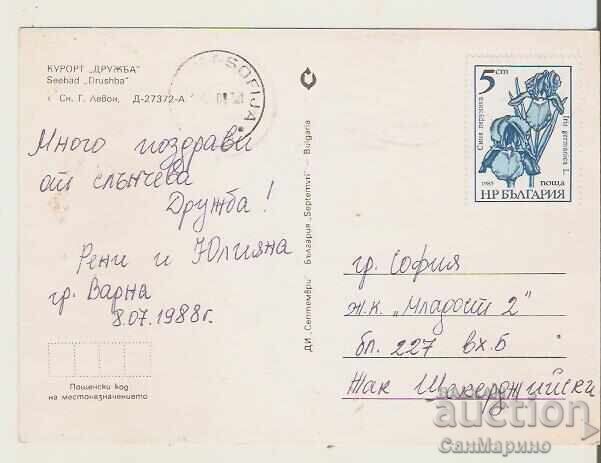 КУРОРТ „ДРУЖБА"
Seebad „Drushba"
Сн. Г. Левон, Д-27372-А
SOFIJA
Много поздрави
от слънчева
Дружба!
Рени и Юлияна
гр. Варна
8.07.1988г.
Пощенски код
на местоназначението
ДИ „Септември" България „Septemvri" - Bulgaria
5 cm
Синя перуника
Iris germanica L.
1985
поща
НР БЪЛГАРИЯ
гр. София
ж.к. „Младост 2"
бл. 227 вх. б
Жак Шакерджийска
auction
СанМарино